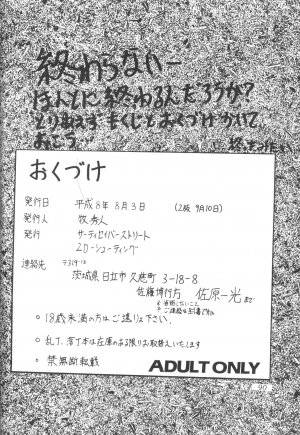 終わらないー
ほんとに終わるんだろうか?
とりあえずまくじとおくづけかいて
おこう
おくづけ
発行日 平成8年8月3日 (2版 9月10日)
発行人 牧秀人
発行 サーティセイバーストリート
2D-シューティング
連絡先 〒319-12
茨城県日立市久慈町 3-18-8
佐藤博行方 佐原一光まで
。18歳未満の方はご遠りょ下さい。
。乱丁、落丁本は在庫のある限りお取替えいたします
。禁無断転載
ADULT ONLY